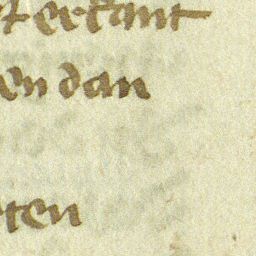 erkant
en dan
ten